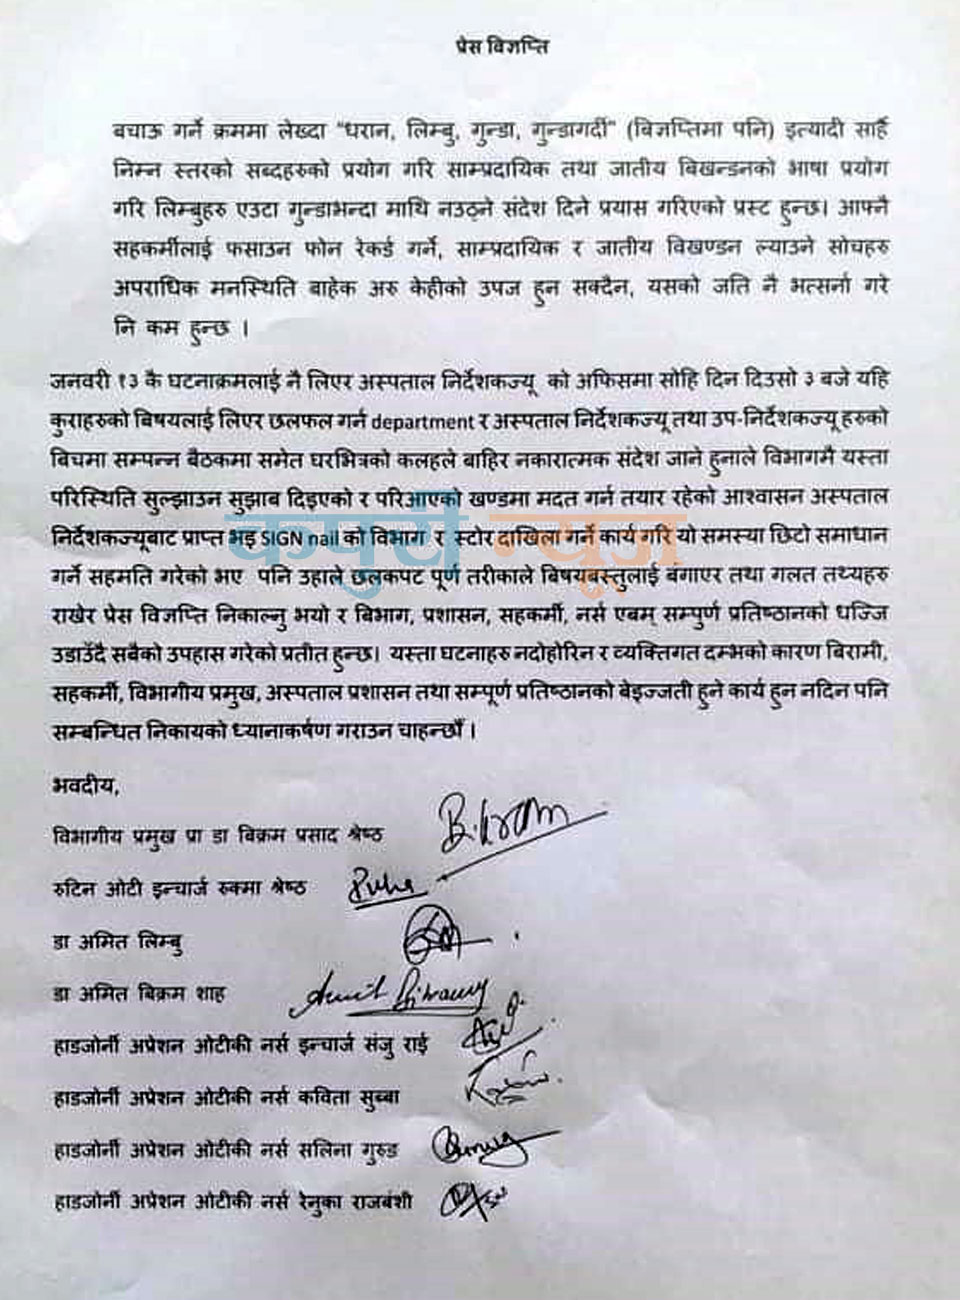 प्रेस विज्ञप्ति
बचाऊ गर्ने क्रममा लेख्दा "धरान, लिम्बु, गुन्डा, गुन्डागर्दी" (विज्ञप्तिमा पनि) इत्यादी सार्है
निम्न स्तरको सब्दहरुको प्रयोग गरि साम्प्रदायिक तथा जातीय बिखन्डनको भाषा प्रयोग
गरि लिम्बुहरु एउटा गुन्डाभन्दा माथि नउठ्ने संदेश दिने प्रयास गरिएको प्रस्ट हुन्छ। आफ्नै
सहकर्मीलाई फसाउन फोन रेकर्ड गर्ने, साम्प्रदायिक र जातीय विखण्डन ल्याउने सोचहरु
अपराधिक मनस्थिति बाहेक अरु केहीको उपज हुन सक्दैन, यसको जति नै भत्सर्ना गरे
नि कम हुन्छ ।
जनवरी १३ कै घटनाक्रमलाई नै लिएर अस्पताल निर्देशकज्यू को अफिसमा सोहि दिन दिउसो ३ बजे यहि
कुराहरुको बिषयलाई लिएर छलफल गर्न department र अस्पताल निर्देशकज्यू तथा उप-निर्देशकज्यू हरुको
बिचमा सम्पन्न बैठकमा समेत घरभित्रको कलहले बाहिर नकारात्मक संदेश जाने हुनाले विभागमै यस्ता
परिस्थिति सुल्झाउन सुझाब दिइएको र परिआएको खण्डमा मदत गर्न तयार रहेको आश्वासन अस्पताल
निर्देशकज्यूबाट प्राप्त भइ SIGN nail को विभाग र स्टोर दाखिला गर्ने कार्य गरि यो समस्या छिटो समाधान
गर्ने सहमति गरेको भए पनि उहाले छलकपट पूर्ण तरीकाले बिषयबस्तुलाई बंगाएर तथा गलत तथ्यहरु
राखेर प्रेस विज्ञप्ति निकाल्नु भयो र बिभाग, प्रशासन, सहकर्मी, नर्स एबम् सम्पुर्ण प्रतिष्ठानको धज्जि
उडाउँदै सबैको उपहास गरेको प्रतीत हुन्छ। यस्ता घटनाहरु नदोहोरिन र व्यक्तिगत दम्भको कारण बिरामी,
सहकर्मी, विभागीय प्रमुख, अस्पताल प्रशासन तथा सम्पूर्ण प्रतिष्ठानको बेइज्जती हुने कार्य हुन नदिन पनि
सम्बन्धित निकायको ध्यानाकर्षण गराउन चाहन्छौँ ।
कपुरी न्यूज
भवदीय,
विभागीय प्रमुख प्रा डा बिक्रम प्रसाद श्रेष्ठ Bikram
रुटिन ओटी इन्चार्ज रुक्मा श्रेष्ठ
डा अमित लिम्बु
डा अमित बिक्रम शाह
हाडजोर्नी अप्रेशन ओटीकी नर्स इन्चार्ज संजु राई
हाडजोर्नी अप्रेशन ओटीकी नर्स कविता सुब्बा
हाडजोर्नी अप्रेशन ओटीकी नर्स सलिना गुरुङ
हाडजोर्नी अप्रेशन ओटीकी नर्स रेनुका राजबंशी